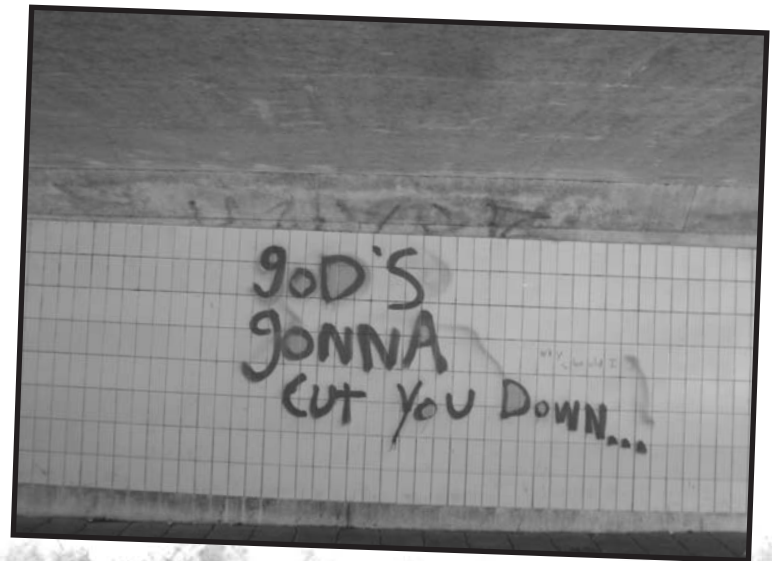 goD'S
gonna
Cut you Down...